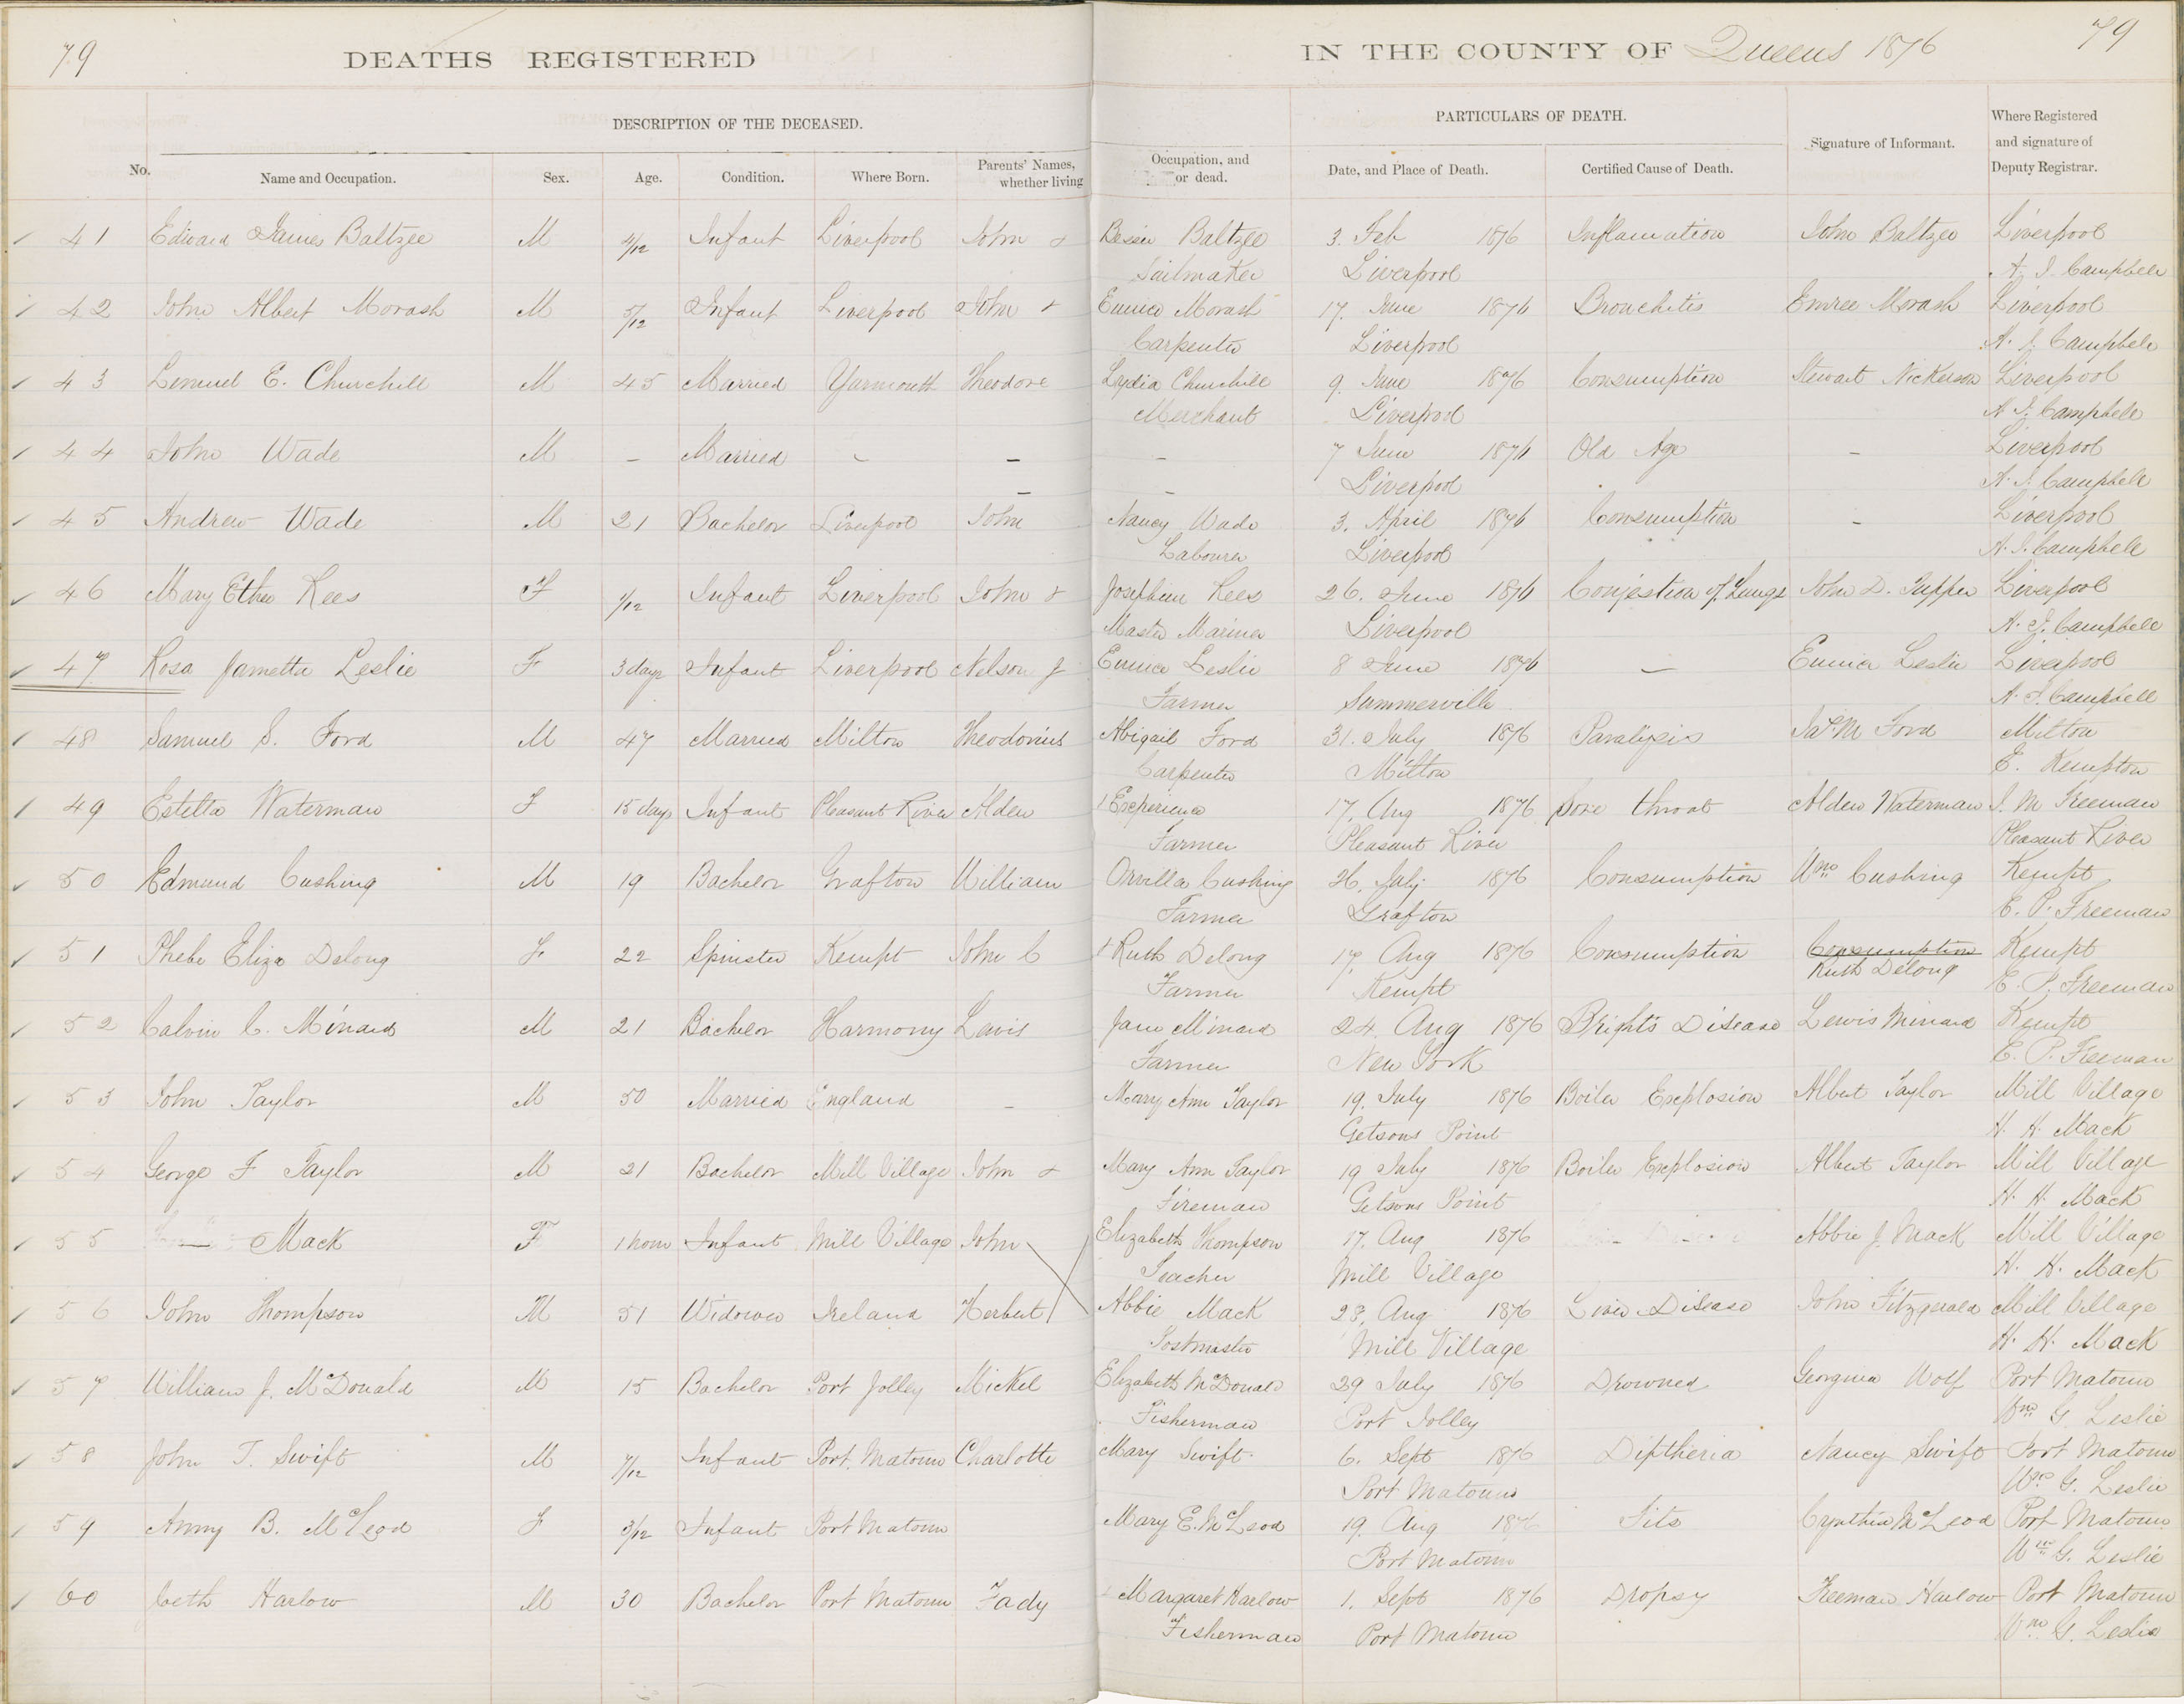 79
DEATHS REGISTERED IN THE COUNTY OF Queens 1876
79
DESCRIPTION OF THE DECEASED. PARTICULARS OF DEATH.
No. Name and Occupation. Sex. Age. Condition. Where Born. Parents' Names, whether living Occupation, and or dead. Date, and Place of Death. Certified Cause of Death. Signature of Informant. Where Registered and signature of Deputy Registrar.
41 Edward James Baltzee M 4/12 Infant Liverpool John & Bessie Baltzee 3. Feb 1876 Inflamation John Baltzee Liverpool
Sailmaker Liverpool A. J. Campbell
42 John Albert Morash M 5/12 Infant Liverpool John & Eunice Morash 17. June 1876 Bronchitis Morash Liverpool
Carpenter Liverpool A. J. Campbell
43 Lemuel E. Churchill M 45 Married Yarmouth Theodore Lydia Churchill 9. June 1876 Consumption Stewart Nickerson Liverpool
Merchant Liverpool A. J. Campbell
44 John Wade M – Married – – – 7 June 1876 Old Age – Liverpool
– – Liverpool A. J. Campbell
45 Andrew Wade M 21 Bachelor Liverpool John Nancy Wade 3. April 1876 Consumption – Liverpool
Labourer Liverpool A. J. Campbell
46 Mary Ether Rees F 1/12 Infant Liverpool John & Josephine Rees 26. June 1876 Conjestion of Lungs John D. Tupper Liverpool
Master Mariner Liverpool A. J. Campbell
47 Rosa Jametta Leslie F 3 days Infant Liverpool Nelson J Eunice Leslie 8 June 1876 – Eunice Leslie Liverpool
Farmer Summerville A. J. Campbell
48 Samuel S. Ford M 47 Married Milton Theodorius Abigail Ford 31. July 1876 Paralysis Jas M Ford Milton
Carpenter Milton E. Kempton
49 Estella Waterman F 15 days Infant Pleasant River Alden & Experience 17. Aug 1876 Sore throat Alden Waterman J. M Freeman
Farmer Pleasant River Pleasant River
50 Edmund Cushing M 19 Bachelor Grafton William Orvilla Cushing 26. July 1876 Consumption Wm Cushing Kempt
Farmer Grafton E. P. Freeman
51 Phebe Eliza Delong F. 22 Spinster Kempt John C & Ruth Delong 17. Aug 1876 Consumption Consumption Kempt
Farmer Kempt Ruth Delong E. P. Freeman
52 Calvin C. Minard M 21 Bachelor Harmony Lavis Jane Minard 24. Aug 1876 Brights Disease Lewis Minard Kempt
Farmer New York E. P. Freeman
53 John Taylor M 50 Married England – Mary Ann Taylor 19. July 1876 Boiler Explosion Albert Taylor Mill Village
Getsons Point H. H. Mack
54 George F Taylor M 21 Bachelor Mill Village John & Mary Ann Taylor 19 July 1876 Boiler Explosion Albert Taylor Mill Village
Fireman Getsons Point H. H. Mack
55 — Mack F 1 hour Infant Mill Village John Elizabeth Thompson 17. Aug 1876 Abbie J. Mack Mill Village
Teacher Mill Village H. H. Mack
56 John Thompson M 51 Widower Ireland Herbert Abbie Mack 23. Aug 1876 Liver Disease John Fitzgerald Mill Village
Postmaster Mill Village H. H. Mack
57 William J. McDonald M 15 Bachelor Port Jolley Mickel Elizabeth McDonald 29 July 1876 Drowned Georgina Wolf Port Matoun
Fisherman Port Jolley Wm G Leslie
58 John T. Swift M 7/12 Infant Port Matoun Charlotte Mary Swift. 6. Sept 1876 Diptheria Nancy Swift Port Matoun
Port Matoun Wm G. Leslie
59 Anny B. McLeod F 3/12 Infant Port Matoun Mary E. McLeod 19. Aug 1876 Fits Cynthia McLeod Port Matoun
Port Matoun Wm G. Leslie
60 Ceth Harlow M 30 Bachelor Port Matoun Zady & Margaret Harlow 1. Sept 1876 Dropsy Freeman Harlow Port Matoun
Fisherman Port Matoun Wm G. Leslie